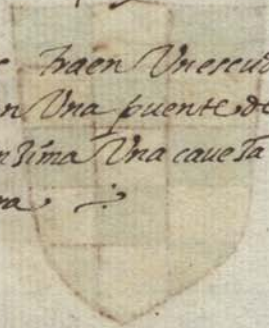 traen Vnescud
n Vna puente de
n zima Vna caveta
ra